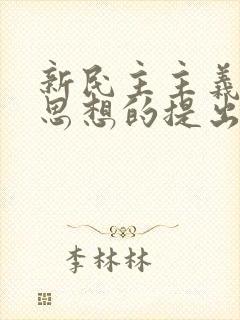 新民主主义
思想的提出
李林林